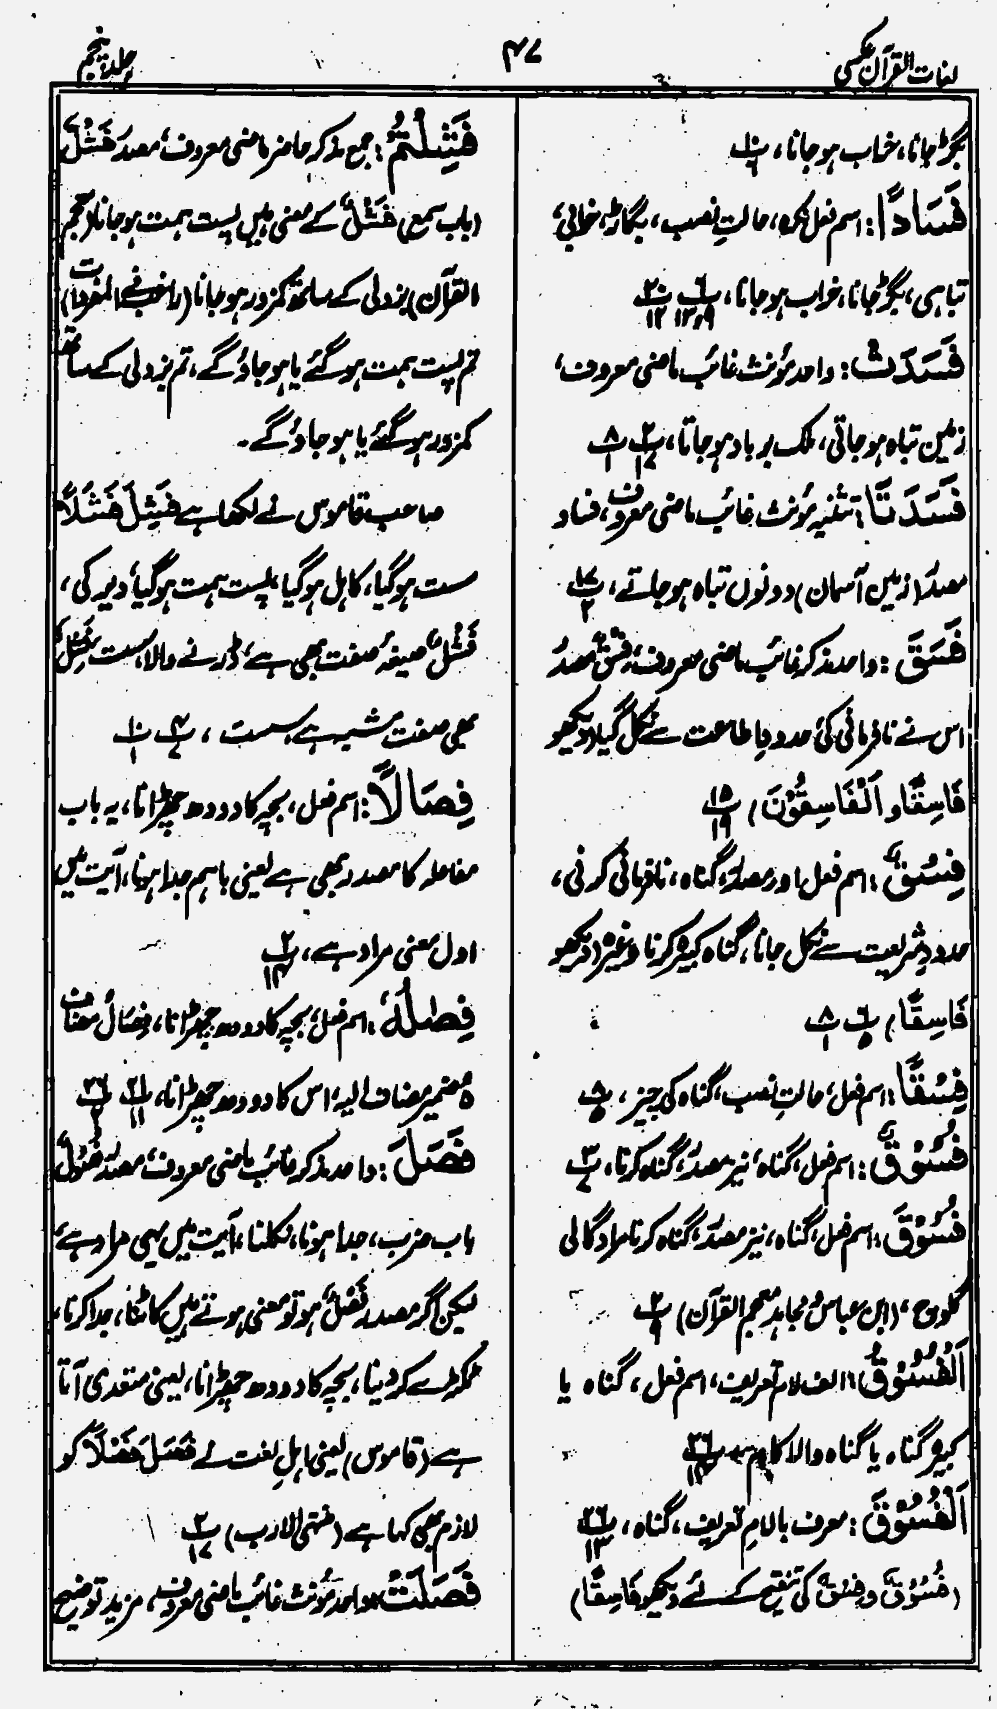 لغات القرآن عکسی
۴۷
جلد پنجم
بگڑ جانا، خراب ہو جانا،
فَسَادًا: اسم فعل نکرہ، حالتِ نصب، بگاڑ، خرابی،
تباہی، بگڑ جانا، خراب ہو جانا،
فَسَدَتْ: واحد مؤنث غائب ماضی معروف،
زمین تباہ ہو جاتی، ملک برباد ہو جاتا،
فَسَدَتَا: تثنیہ مؤنث غائب ماضی معروف، فساد
مصدر (زمین آسمان) دونوں تباہ ہو جاتے، پ ۱۷ / ۲
فَسَقَ: واحد مذکر غائب ماضی معروف، فسق مصدر
اس نے نافرمانی کی حدودِ اطاعت سے نکل گیا (دیکھو
فَاسِقًا و اَلْفَاسِقُوْنَ) پ ۱۵ / ۱۹
فِسْقٌ: اسم فعل اور مصدر، گناہ، نافرمانی کرنی،
حدودِ شریعت سے نکل جانا، گناہ کبیرہ کرنا وغیرہ (دیکھو
فَاسِقًا) پ ۶ / ۵ پ ۸ / ۱
فِسْقًا: اسم فعل، حالتِ نصب، گناہ کی چیز، پ ۸ / ۵
فُسُوْقٌ: اسم فعل، گناہ، نیز مصدر، گناہ کرنا، پ ۳ / ۷
فُسُوْقَ: اسم فعل، گناہ، نیز مصدر، گناہ کرنا مراد گالی
گلوچ، (ابن عباسؓ و مجاہد معجم القرآن) پ ۲ / ۹
اَلْفُسُوْقُ: الف لام تعریف، اسم فعل، گناہ یا
کبیرہ گناہ یا گناہ والا کام، پ ۲۶ / ۱۴
اَلْفُسُوْقَ: معرف بالامِ تعریف، گناہ، پ ۲۶ / ۱۳
(فُسُوْقٌ و فِسْقٌ کی تنقیح کے لئے دیکھو فَاسِقًا)
فَشِلْتُمْ: جمع مذکر حاضر ماضی معروف، مصدر فَشْلٌ
(باب سمع) فَشْلٌ کے معنی ہیں پست ہمت ہو جانا (معجم
القرآن) بزدلی کے ساتھ کمزور ہو جانا (راغب فی المفردات)
تم پست ہمت ہو گئے یا ہو جاؤ گے، تم بزدلی کے ساتھ
کمزور ہو گئے یا ہو جاؤ گے۔
صاحب قاموس نے لکھا ہے فَشِلَ فَشَلًا
سست ہو گیا، کاہل ہو گیا، پست ہمت ہو گیا، دیر کی،
فَشْلٌ صیغۂ صفت بھی ہے، ڈرنے والا، سست، فَشِلٌ
بھی صفت مشبہ ہے، سست، پ ۴ / ۷ پ ۱۰ / ۱
فِصَالًا: اسم فعل، بچہ کا دودھ چھڑانا، یہ باب
مفاعلہ کا مصدر بھی ہے یعنی باہم جدا ہونا، آیت میں
اول معنی مراد ہے، پ ۲ / ۱۴
فِصٰلُهٗ: اسم فعل، بچہ کا دودھ چھڑانا، فصالُ مضاف
ہ ضمیر مضاف الیہ، اس کا دودھ چھڑانا، پ ۲۱ / ۱۱ پ ۲۶ / ۲
فَصَلَ: واحد مذکر غائب ماضی معروف، مصدر فُصُوْلٌ
باب ضرب، جدا ہونا، نکلنا، آیت میں یہی مراد ہے،
لیکن اگر مصدر فَصْلٌ ہو تو معنی ہوتے ہیں کاٹنا، جدا کرنا،
ٹکڑے کر دینا، بچہ کا دودھ چھڑانا، یعنی متعدی آتا
ہے (قاموس) یعنی اہلِ لغت نے فَصَلَ فَصْلًا کو
لازم بھی کہا ہے (منتہی الارب) پ ۲ / ۱۷
فَصَلَتْ: واحد مؤنث غائب ماضی معروف، مزید توضیح